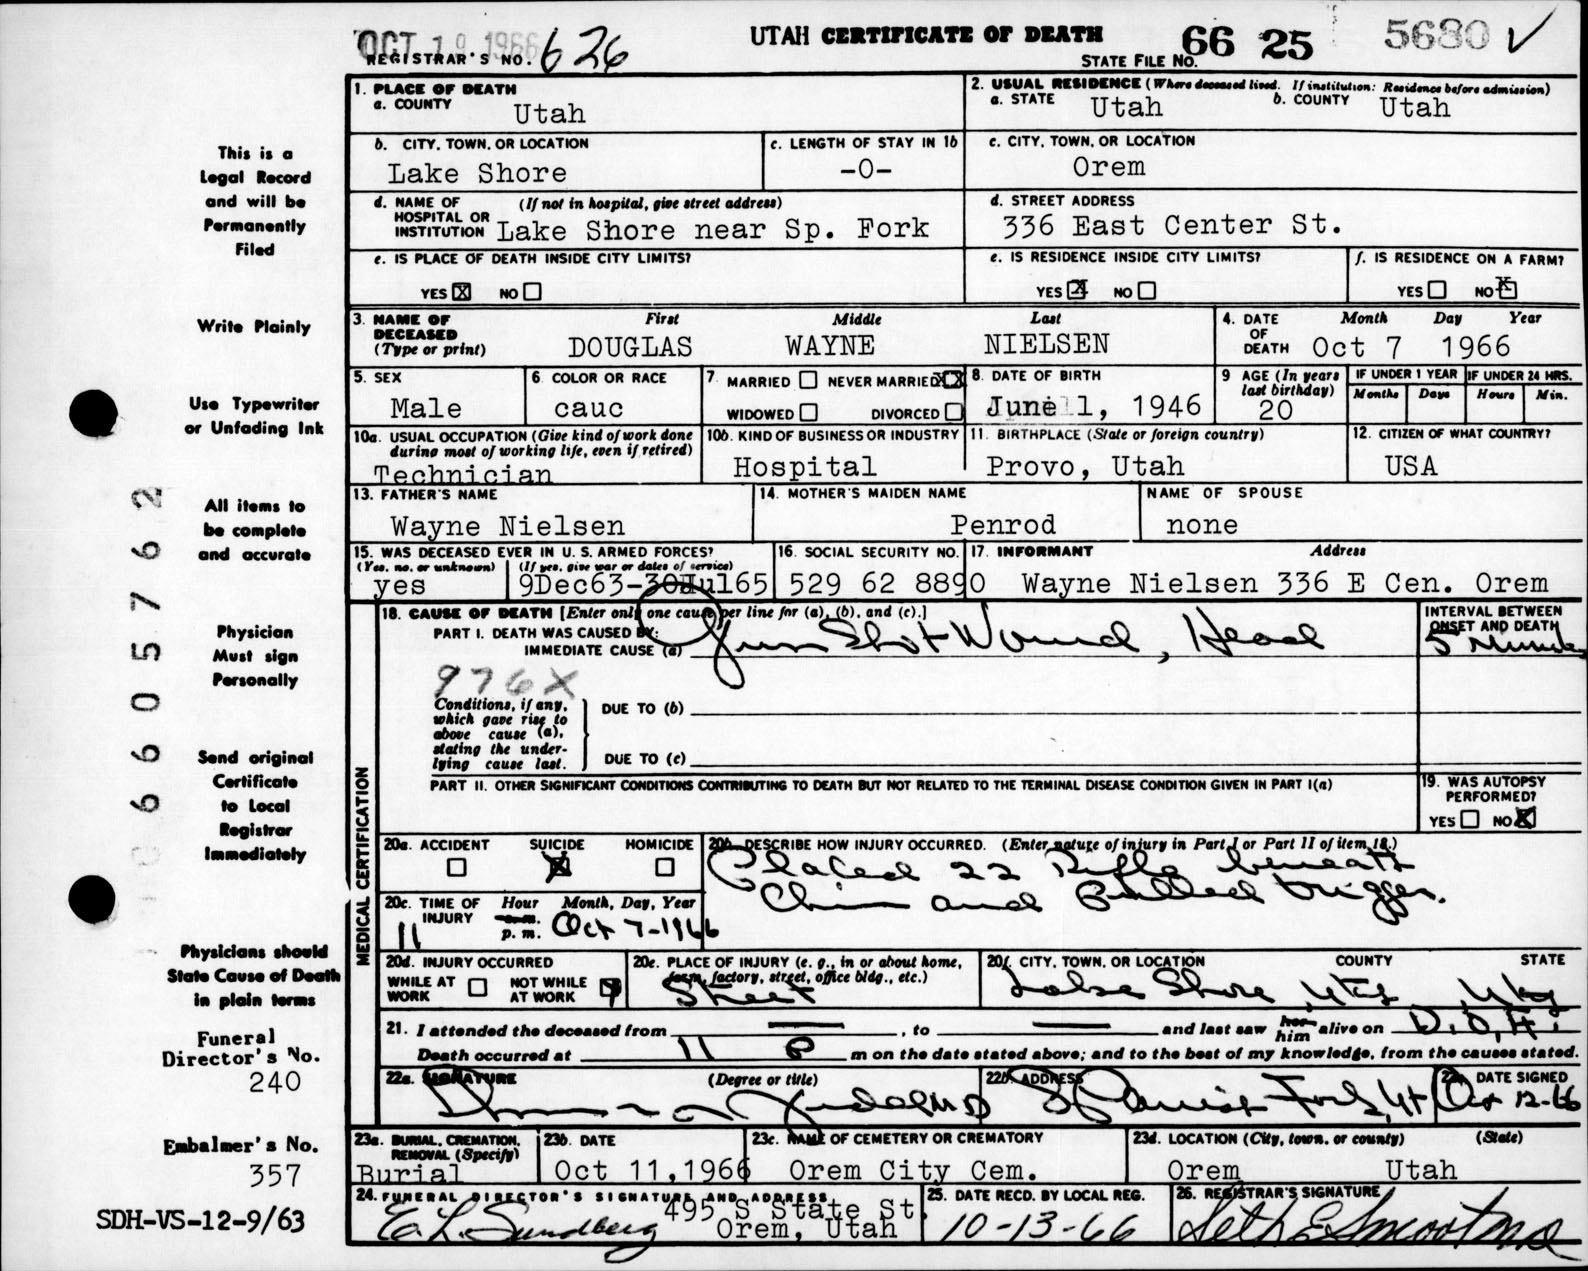 OCT 19 1966
REGISTRAR'S NO. 626
UTAH CERTIFICATE OF DEATH
STATE FILE NO. 66 25 5680 ✓
This is a
Legal Record
and will be
Permanently
Filed
Write Plainly
Use Typewriter
or Unfading Ink
All items to
be complete
and accurate
Physician
Must sign
Personally
Send original
Certificate
to Local
Registrar
Immediately
Physicians should
State Cause of Death
in plain terms
Funeral
Director's No.
240
Embalmer's No.
357
SDH-VS-12-9/63
06605762
1. PLACE OF DEATH
a. COUNTY Utah
2. USUAL RESIDENCE (Where deceased lived. If institution: Residence before admission)
a. STATE Utah b. COUNTY Utah
b. CITY, TOWN, OR LOCATION
Lake Shore
c. LENGTH OF STAY IN 1b
-0-
c. CITY, TOWN, OR LOCATION
Orem
d. NAME OF (If not in hospital, give street address)
HOSPITAL OR
INSTITUTION Lake Shore near Sp. Fork
d. STREET ADDRESS
336 East Center St.
e. IS PLACE OF DEATH INSIDE CITY LIMITS?
YES X NO
e. IS RESIDENCE INSIDE CITY LIMITS?
YES X NO
f. IS RESIDENCE ON A FARM?
YES NO X
3. NAME OF DECEASED (Type or print) First Middle Last
DOUGLAS WAYNE NIELSEN
4. DATE OF DEATH Month Day Year
Oct 7 1966
5. SEX
Male
6. COLOR OR RACE
cauc
7. MARRIED NEVER MARRIED XX
WIDOWED DIVORCED
8. DATE OF BIRTH
June 1, 1946
9 AGE (In years last birthday)
20
IF UNDER 1 YEAR IF UNDER 24 HRS.
Months Days Hours Min.
10a. USUAL OCCUPATION (Give kind of work done during most of working life, even if retired)
Technician
10b. KIND OF BUSINESS OR INDUSTRY
Hospital
11. BIRTHPLACE (State or foreign country)
Provo, Utah
12. CITIZEN OF WHAT COUNTRY?
USA
13. FATHER'S NAME
Wayne Nielsen
14. MOTHER'S MAIDEN NAME
Penrod
NAME OF SPOUSE
none
15. WAS DECEASED EVER IN U.S. ARMED FORCES?
(Yes, no, or unknown) (If yes, give war or dates of service)
yes 9Dec63-30Jul65
16. SOCIAL SECURITY NO.
529 62 8890
17. INFORMANT Address
Wayne Nielsen 336 E Cen. Orem
MEDICAL CERTIFICATION
18. CAUSE OF DEATH [Enter only one cause per line for (a), (b), and (c).]
PART I. DEATH WAS CAUSED BY:
IMMEDIATE CAUSE (a) Gun Shot Wound, Head
INTERVAL BETWEEN
ONSET AND DEATH
5 Minutes
976X
Conditions, if any,
which gave rise to
above cause (a),
stating the under-
lying cause last.
DUE TO (b)
DUE TO (c)
PART II. OTHER SIGNIFICANT CONDITIONS CONTRIBUTING TO DEATH BUT NOT RELATED TO THE TERMINAL DISEASE CONDITION GIVEN IN PART I(a)
19. WAS AUTOPSY
PERFORMED?
YES NO X
20a. ACCIDENT SUICIDE HOMICIDE
X
20b. DESCRIBE HOW INJURY OCCURRED. (Enter nature of injury in Part I or Part II of item 18.)
Placed 22 Rifle beneath
Chin and Pulled trigger.
20c. TIME OF INJURY Hour Month, Day, Year
11 a.m. p.m. Oct 7-1966
20d. INJURY OCCURRED
WHILE AT WORK NOT WHILE AT WORK
20e. PLACE OF INJURY (e. g., in or about home, farm, factory, street, office bldg., etc.)
Street
20f. CITY, TOWN, OR LOCATION COUNTY STATE
Lake Shore
21. I attended the deceased from — , to — and last saw her him alive on D.O.A.
Death occurred at 11 P m on the date stated above; and to the best of my knowledge, from the causes stated.
22a. SIGNATURE (Degree or title)
MD
22b. ADDRESS
Spanish Fork, Ut
22c. DATE SIGNED
Oct 12-66
23a. BURIAL, CREMATION, REMOVAL (Specify)
Burial
23b. DATE
Oct 11,1966
23c. NAME OF CEMETERY OR CREMATORY
Orem City Cem.
23d. LOCATION (City, town, or county) (State)
Orem Utah
24. FUNERAL DIRECTOR'S SIGNATURE AND ADDRESS
E. L. Sundberg 495 S State St.
Orem, Utah
25. DATE RECD. BY LOCAL REG.
10-13-66
26. REGISTRAR'S SIGNATURE
Seth E Smoot MD